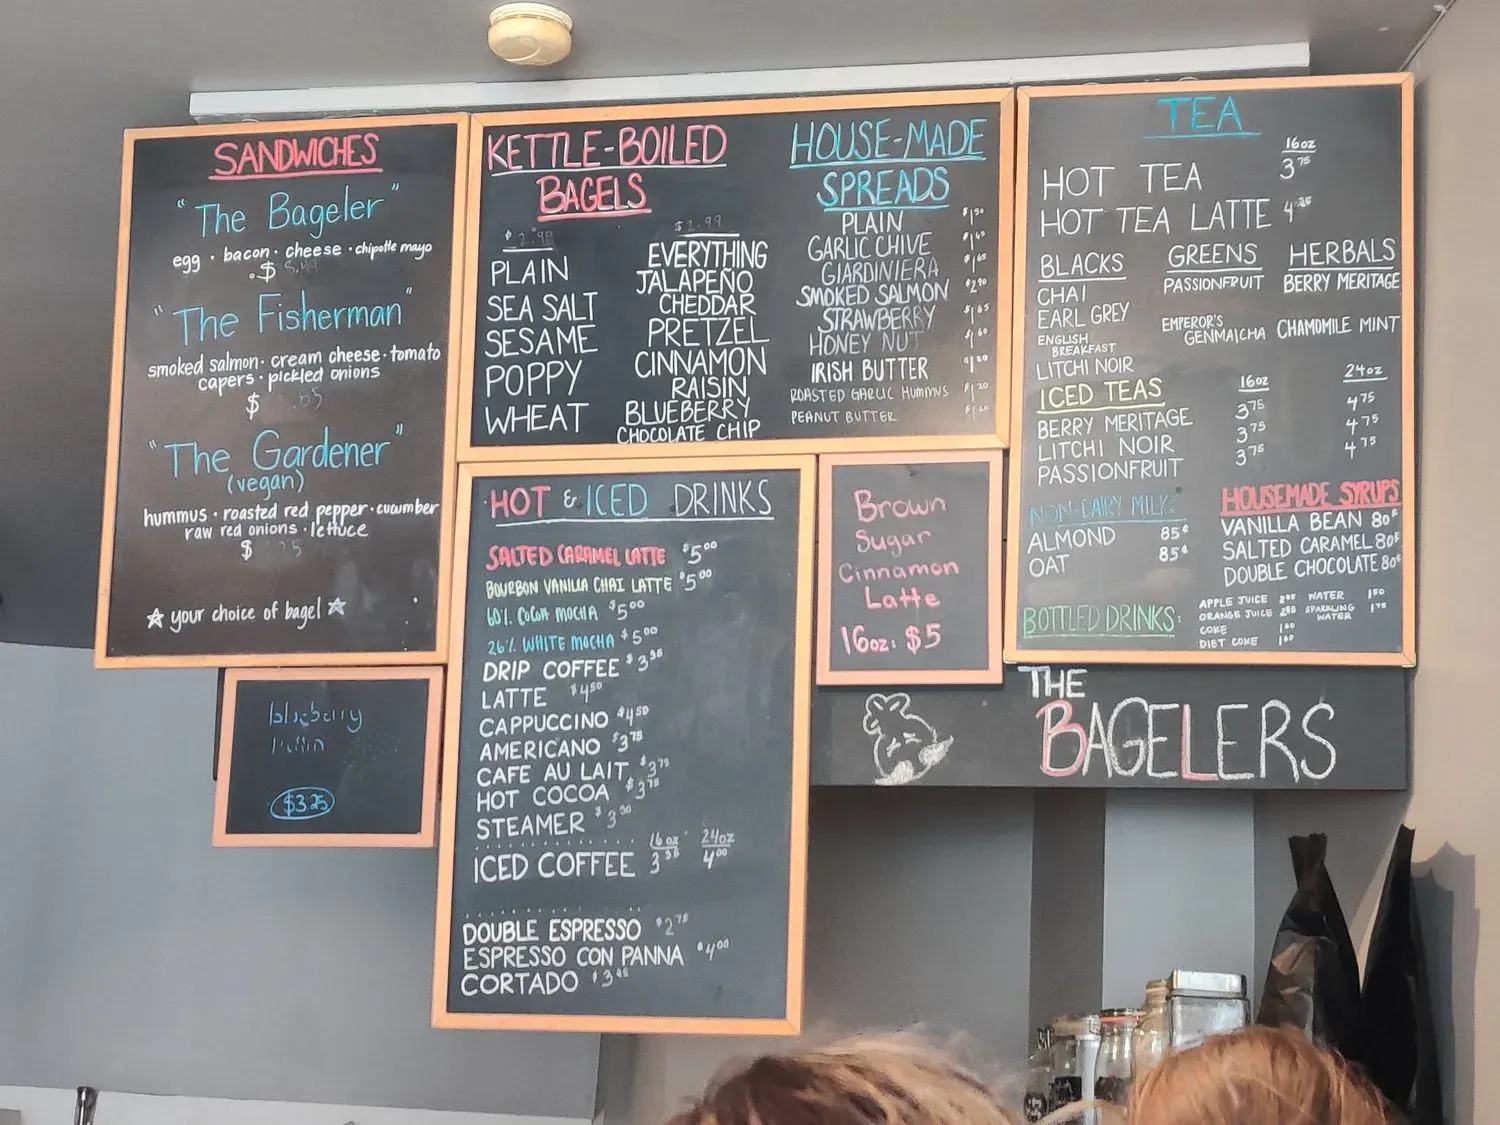 SANDWICHES
"The Bageler"
egg · bacon · cheese · chipotle mayo
$
"The Fisherman"
smoked salmon · cream cheese · tomato
capers · pickled onions
$
"The Gardener"
(vegan)
hummus · roasted red pepper · cucumber
raw red onions · lettuce
$
☆ your choice of bagel ☆
blueberry
$3.25
KETTLE-BOILED
BAGELS
$2.99
PLAIN
SEA SALT
SESAME
POPPY
WHEAT
$2.99
EVERYTHING
JALAPEÑO
CHEDDAR
PRETZEL
CINNAMON
RAISIN
BLUEBERRY
CHOCOLATE CHIP
HOUSE-MADE
SPREADS
PLAIN $1.50
GARLIC CHIVE $1.65
GIARDINIERA $1.65
SMOKED SALMON $2.90
STRAWBERRY $1.65
HONEY NUT $1.60
IRISH BUTTER $1.20
ROASTED GARLIC HUMMUS $1.20
PEANUT BUTTER
HOT & ICED DRINKS
SALTED CARAMEL LATTE $5.00
BOURBON VANILLA CHAI LATTE $5.00
60% COCOA MOCHA $5.00
26% WHITE MOCHA $5.00
DRIP COFFEE
LATTE $4.50
CAPPUCCINO $4.50
AMERICANO $3.75
CAFE AU LAIT $3.75
HOT COCOA $3.75
STEAMER $3.50
16oz 24oz
ICED COFFEE 4.00
DOUBLE ESPRESSO $2.75
ESPRESSO CON PANNA $4.00
CORTADO
Brown
Sugar
Cinnamon
Latte
16oz: $5
TEA
16oz
HOT TEA 3.75
HOT TEA LATTE
BLACKS
CHAI
EARL GREY
ENGLISH
BREAKFAST
LITCHI NOIR
GREENS
PASSIONFRUIT
EMPEROR'S
GENMAICHA
HERBALS
BERRY MERITAGE
CHAMOMILE MINT
ICED TEAS 16oz 24oz
BERRY MERITAGE 3.75 4.75
LITCHI NOIR 3.75 4.75
PASSIONFRUIT 3.75 4.75
NON-DAIRY MILK:
ALMOND 85¢
OAT 85¢
HOUSEMADE SYRUPS
VANILLA BEAN 80¢
SALTED CARAMEL 80¢
DOUBLE CHOCOLATE 80¢
BOTTLED DRINKS:
APPLE JUICE
ORANGE JUICE
COKE 1.00
DIET COKE 1.00
WATER 1.50
SPARKLING
WATER 1.75
THE
BAGELERS